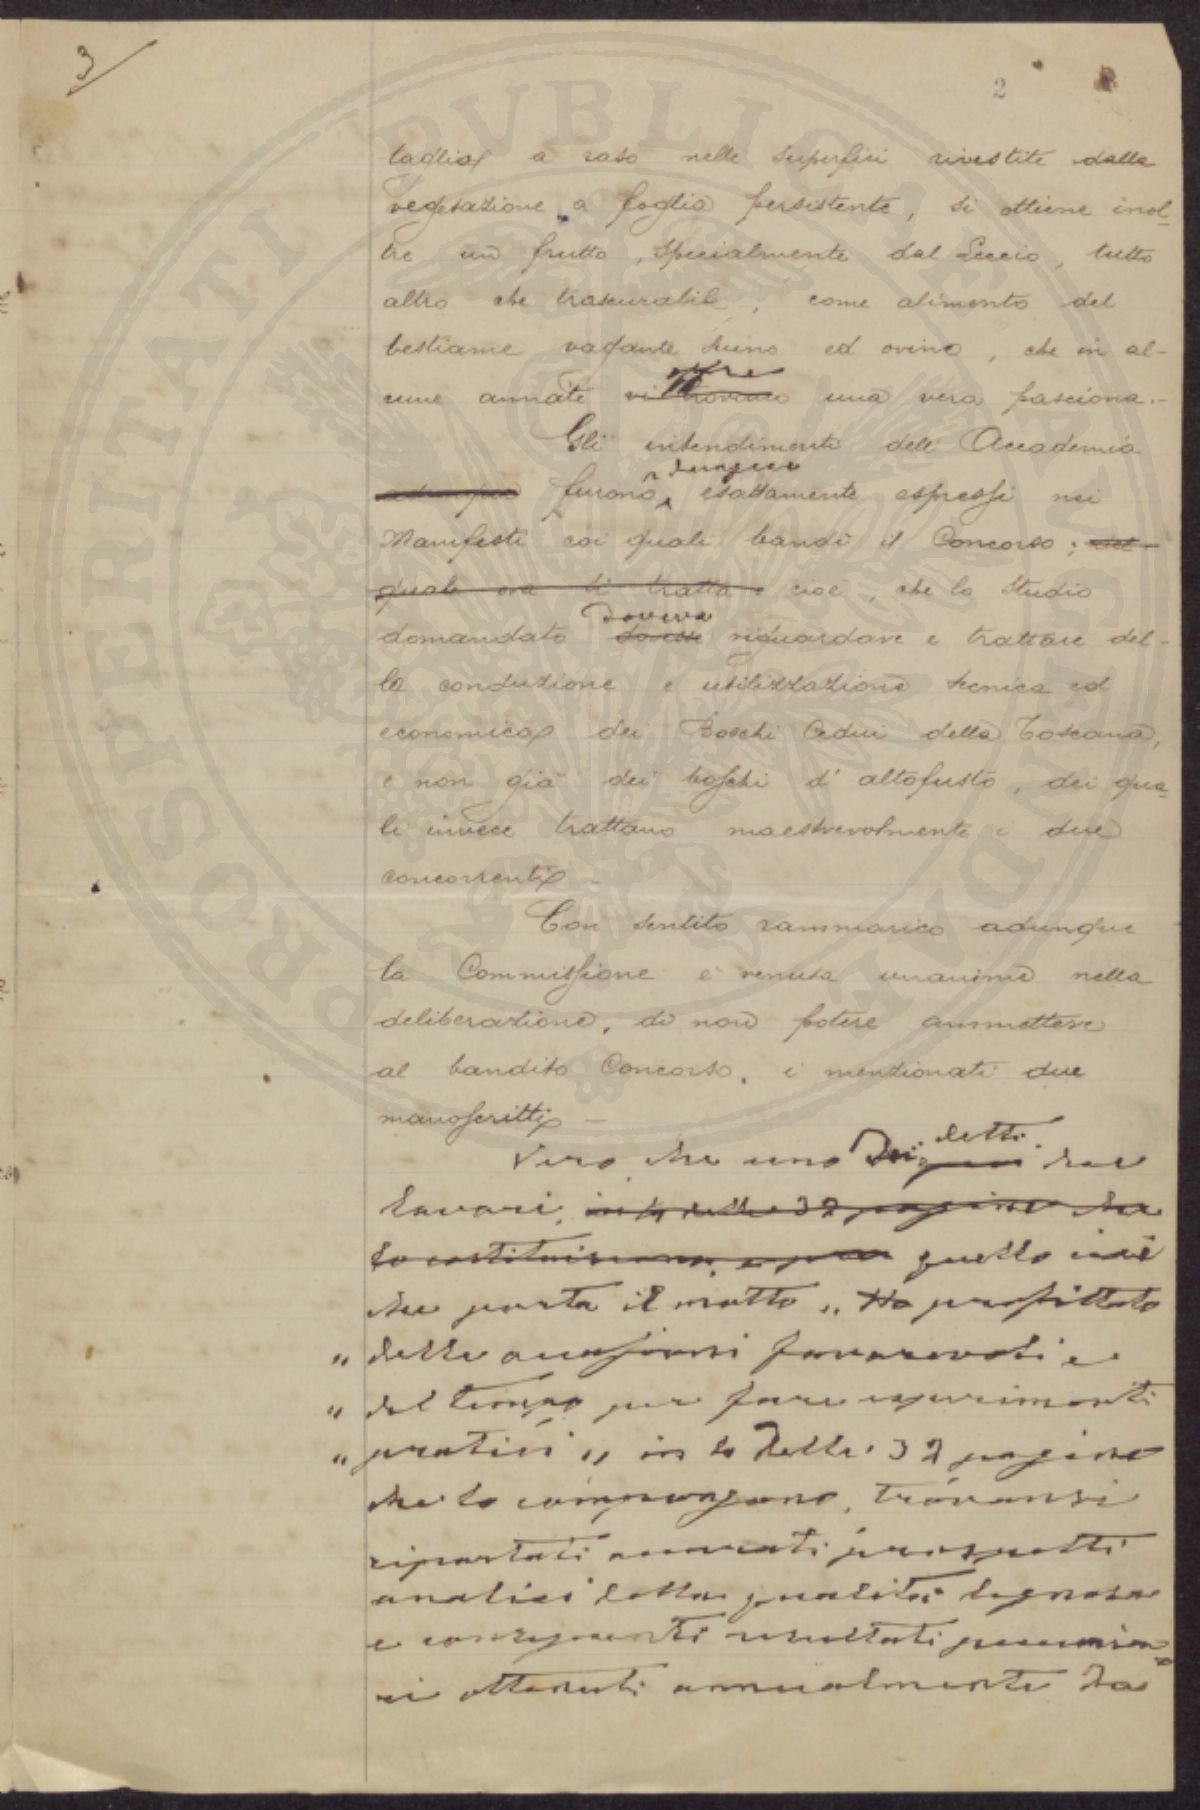 3
2
taglia a raso nelle superfici rivestite dalla
vegetazione a foglia persistente, si ottiene inol-
tre un frutto, specialmente dal Leccio, tutto
altro che trascurabile, come alimento del
bestiame vagante suino ed ovino, che in al-
cune annate vi trovano una vera pasciona.-
Gli intendimenti dell'Accademia
dunque
furono, esattamente espressi nei
Manifesti coi quali bandì il Concorso; del
quale ora si tratta cioè, che lo studio
doveva
domandato dovesse riguardare e trattare del-
la conduzione e utilizzazione tecnica ed
economica dei Boschi Cedui della Toscana,
e non già dei boschi d'altofusto, dei qua-
li invece trattano maestrevolmente i due
concorrenti -
Con sentito rammarico adunque
la Commissione è venuta unanime nella
deliberazione, di non potere ammettere
al bandito Concorso, i menzionati due
manoscritti -
detti
Vero che uno Dei due
lavori, in 4 delle 32 pagine che
lo costituiscono, e quello cioè
che porta il motto „ Ho profittato
„ delle occasioni favorevoli e
„ del tempo per fare esperimenti
„ pratici „ in 4 delle 32 pagine
che lo compongono, trovansi
riportati accurati prospetti
analici della qualità legnosa
e conseguenti resultati pecunia-
ri ottenuti annualmente da
PROSPERITATI PVBLICAE